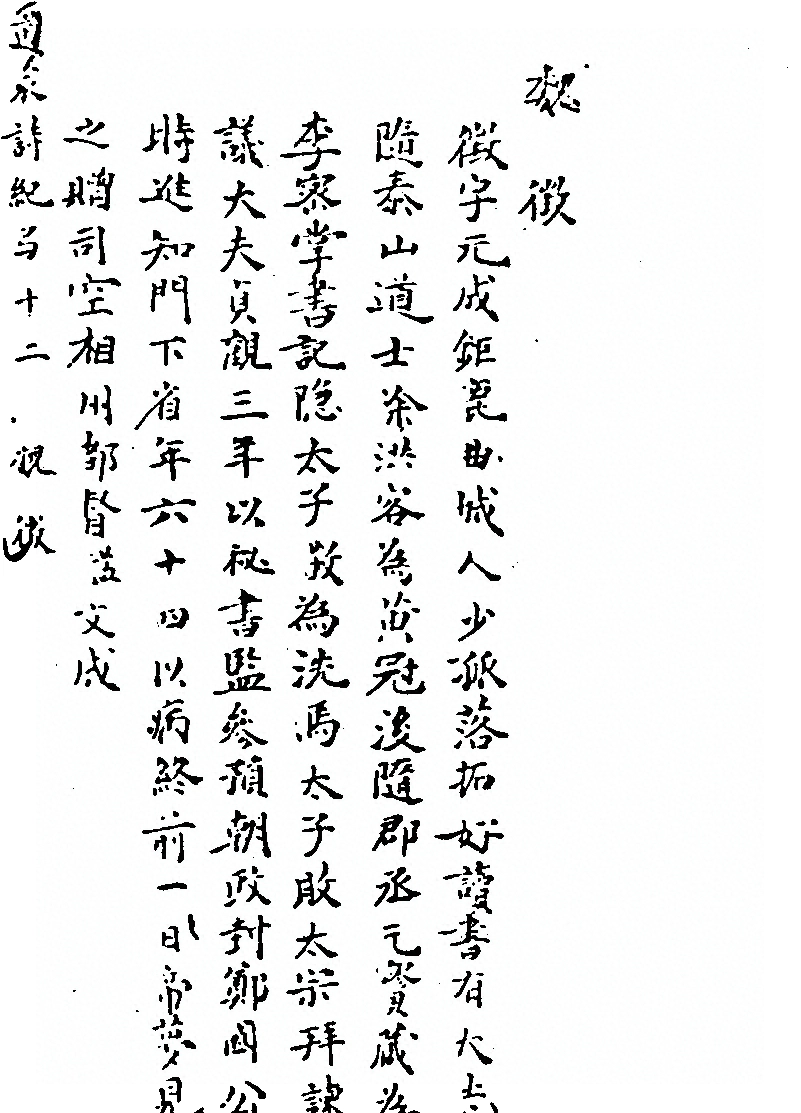 魏徵
徵字元成鉅鹿曲城人少孤落拓好讀書有大志
隨泰山道士徐洪客為黃冠後隨郡丞元寶藏為
李密掌書記隐太子敬為洗馬太子敗太宗拜諫
議大夫貞觀三年以祕書監參預朝政封鄭國公
時進知門下省年六十四以病終前一日帝夢見
之贈司空相州都督諡文成
詩紀 十二 魏徵